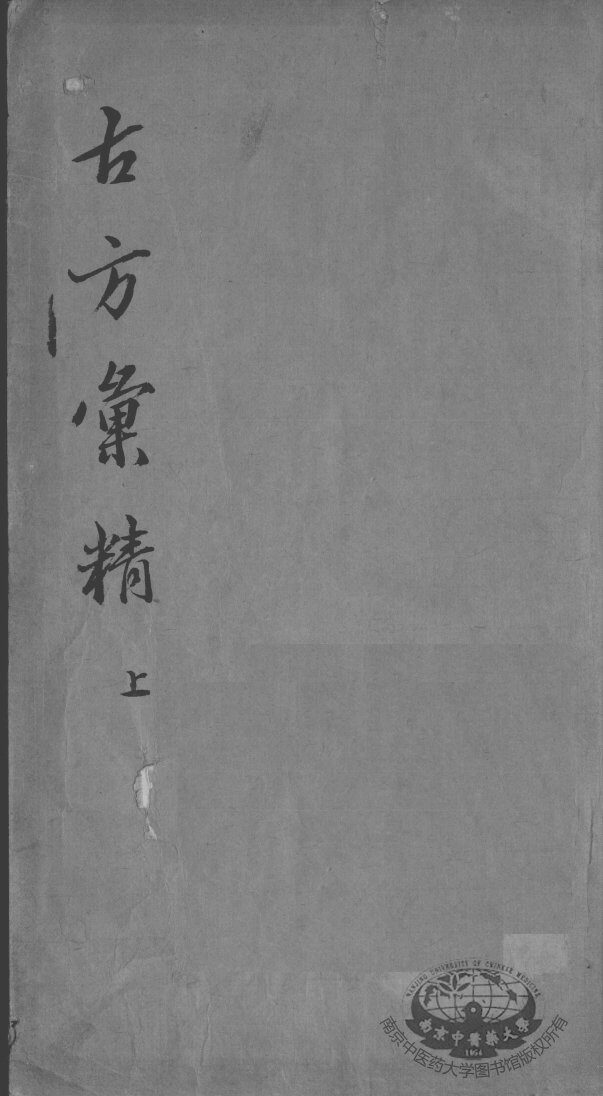 古方彙精
上
NANJING UNIVERSITY OF CHINESE MEDICINE
南京中醫藥大學
1954
南京中医药大学图书馆版权所有